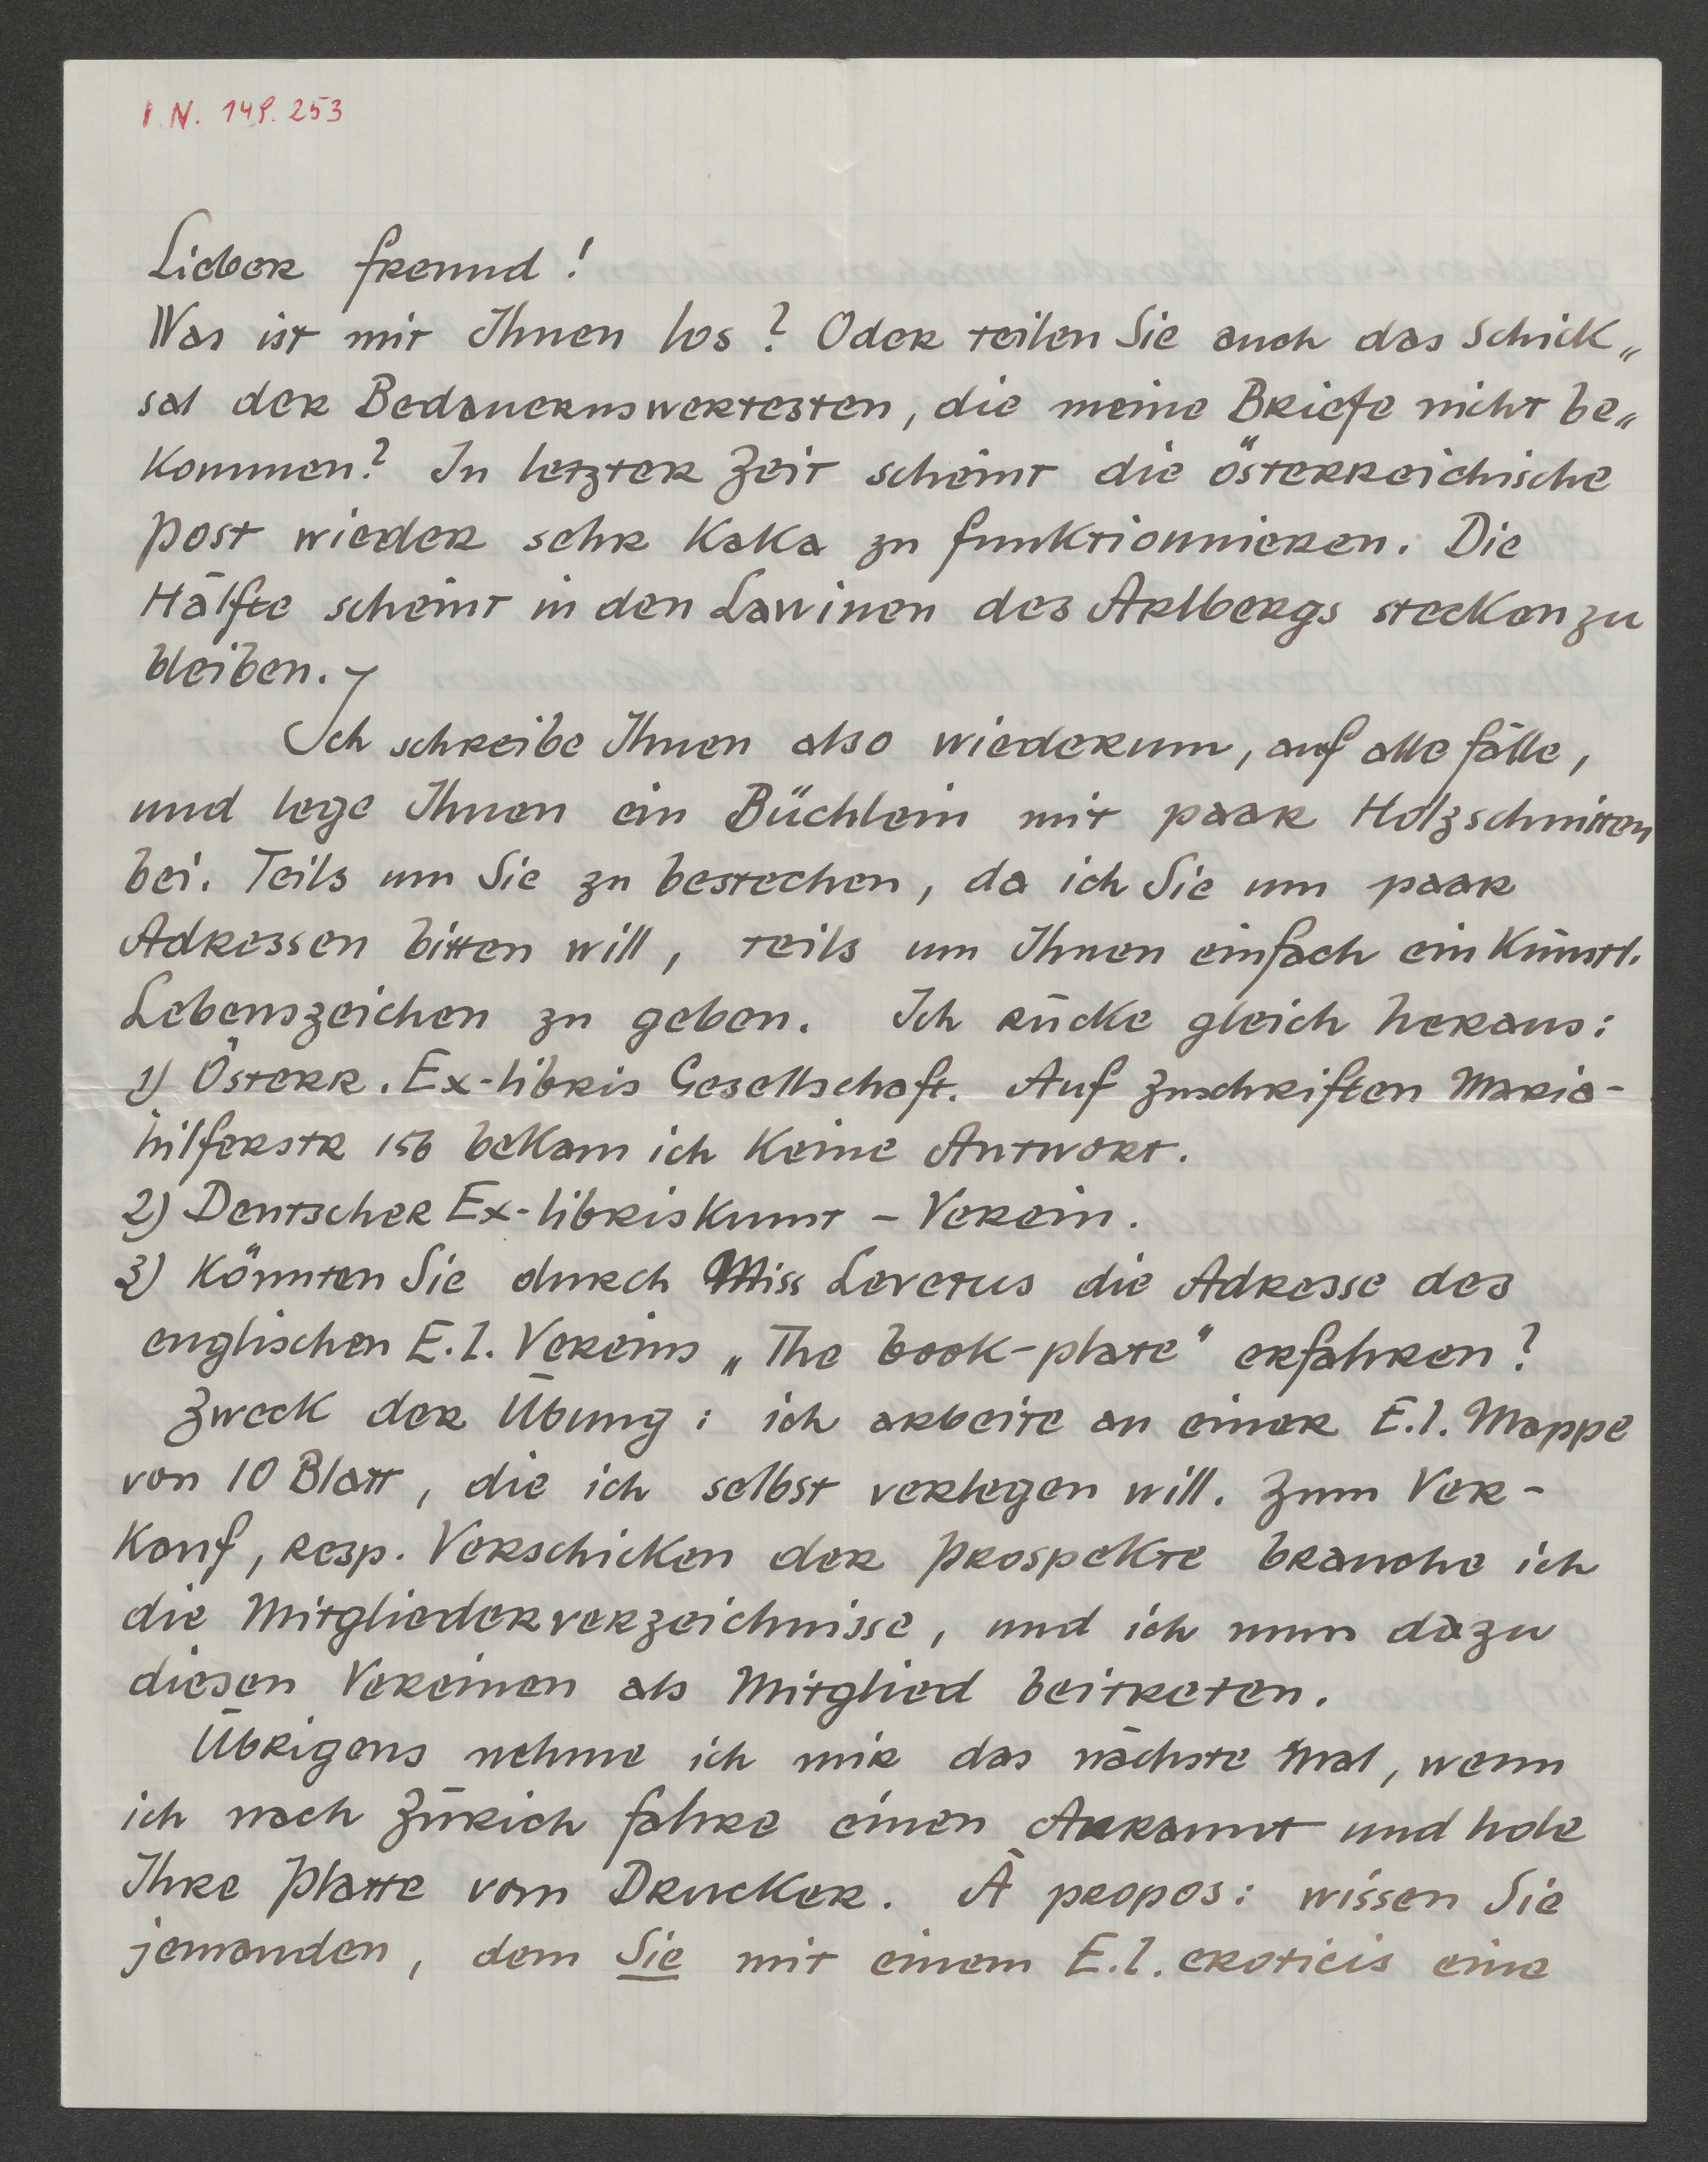 I.N. 149.253
Lieber Freund!
Was ist mit Ihnen los? Oder teilen Sie auch das Schick„
sal der Bedauernswertesten, die meine Briefe nicht be„
kommen? In letzter Zeit scheint die österreichische
Post wieder sehr Kaka zu funktionnieren. Die
Hälfte scheint in den Lawinen des Arlbergs stecken zu
bleiben. –
Ich schreibe Ihnen also wiederum, auf alle Fälle,
und lege Ihnen ein Büchlein mit paar Holzschnitten
bei. Teils um Sie zu bestechen, da ich Sie um paar
Adressen bitten will, teils um Ihnen einfach ein Künstl.
Lebenszeichen zu geben. Ich rücke gleich heraus:
1) Österr. Ex-libris Gesellschaft. Auf Zuschriften Maria-
hilferstr 156 bekam ich keine Antwort.
2) Deutscher Ex-libriskunst – Verein.
3) Könnten Sie durch Miss Levetus die Adresse des
englischen E.l. Vereins „The book-plate" erfahren?
Zweck der Übung: ich arbeite an einer E.l. Mappe
von 10 Blatt, die ich selbst verlegen will. Zum Ver-
kauf, resp. Verschicken der Prospekte brauche ich
die Mitgliederverzeichnisse, und ich muss dazu
diesen Vereinen als Mitglied beitreten.
Übrigens nehme ich mir das nächste Mal, wenn
ich nach Zürich fahre einen und hole
Ihre Platte vom Drucker. À propos: wissen Sie
jemanden, dem Sie mit einem E.l. eroticis eine